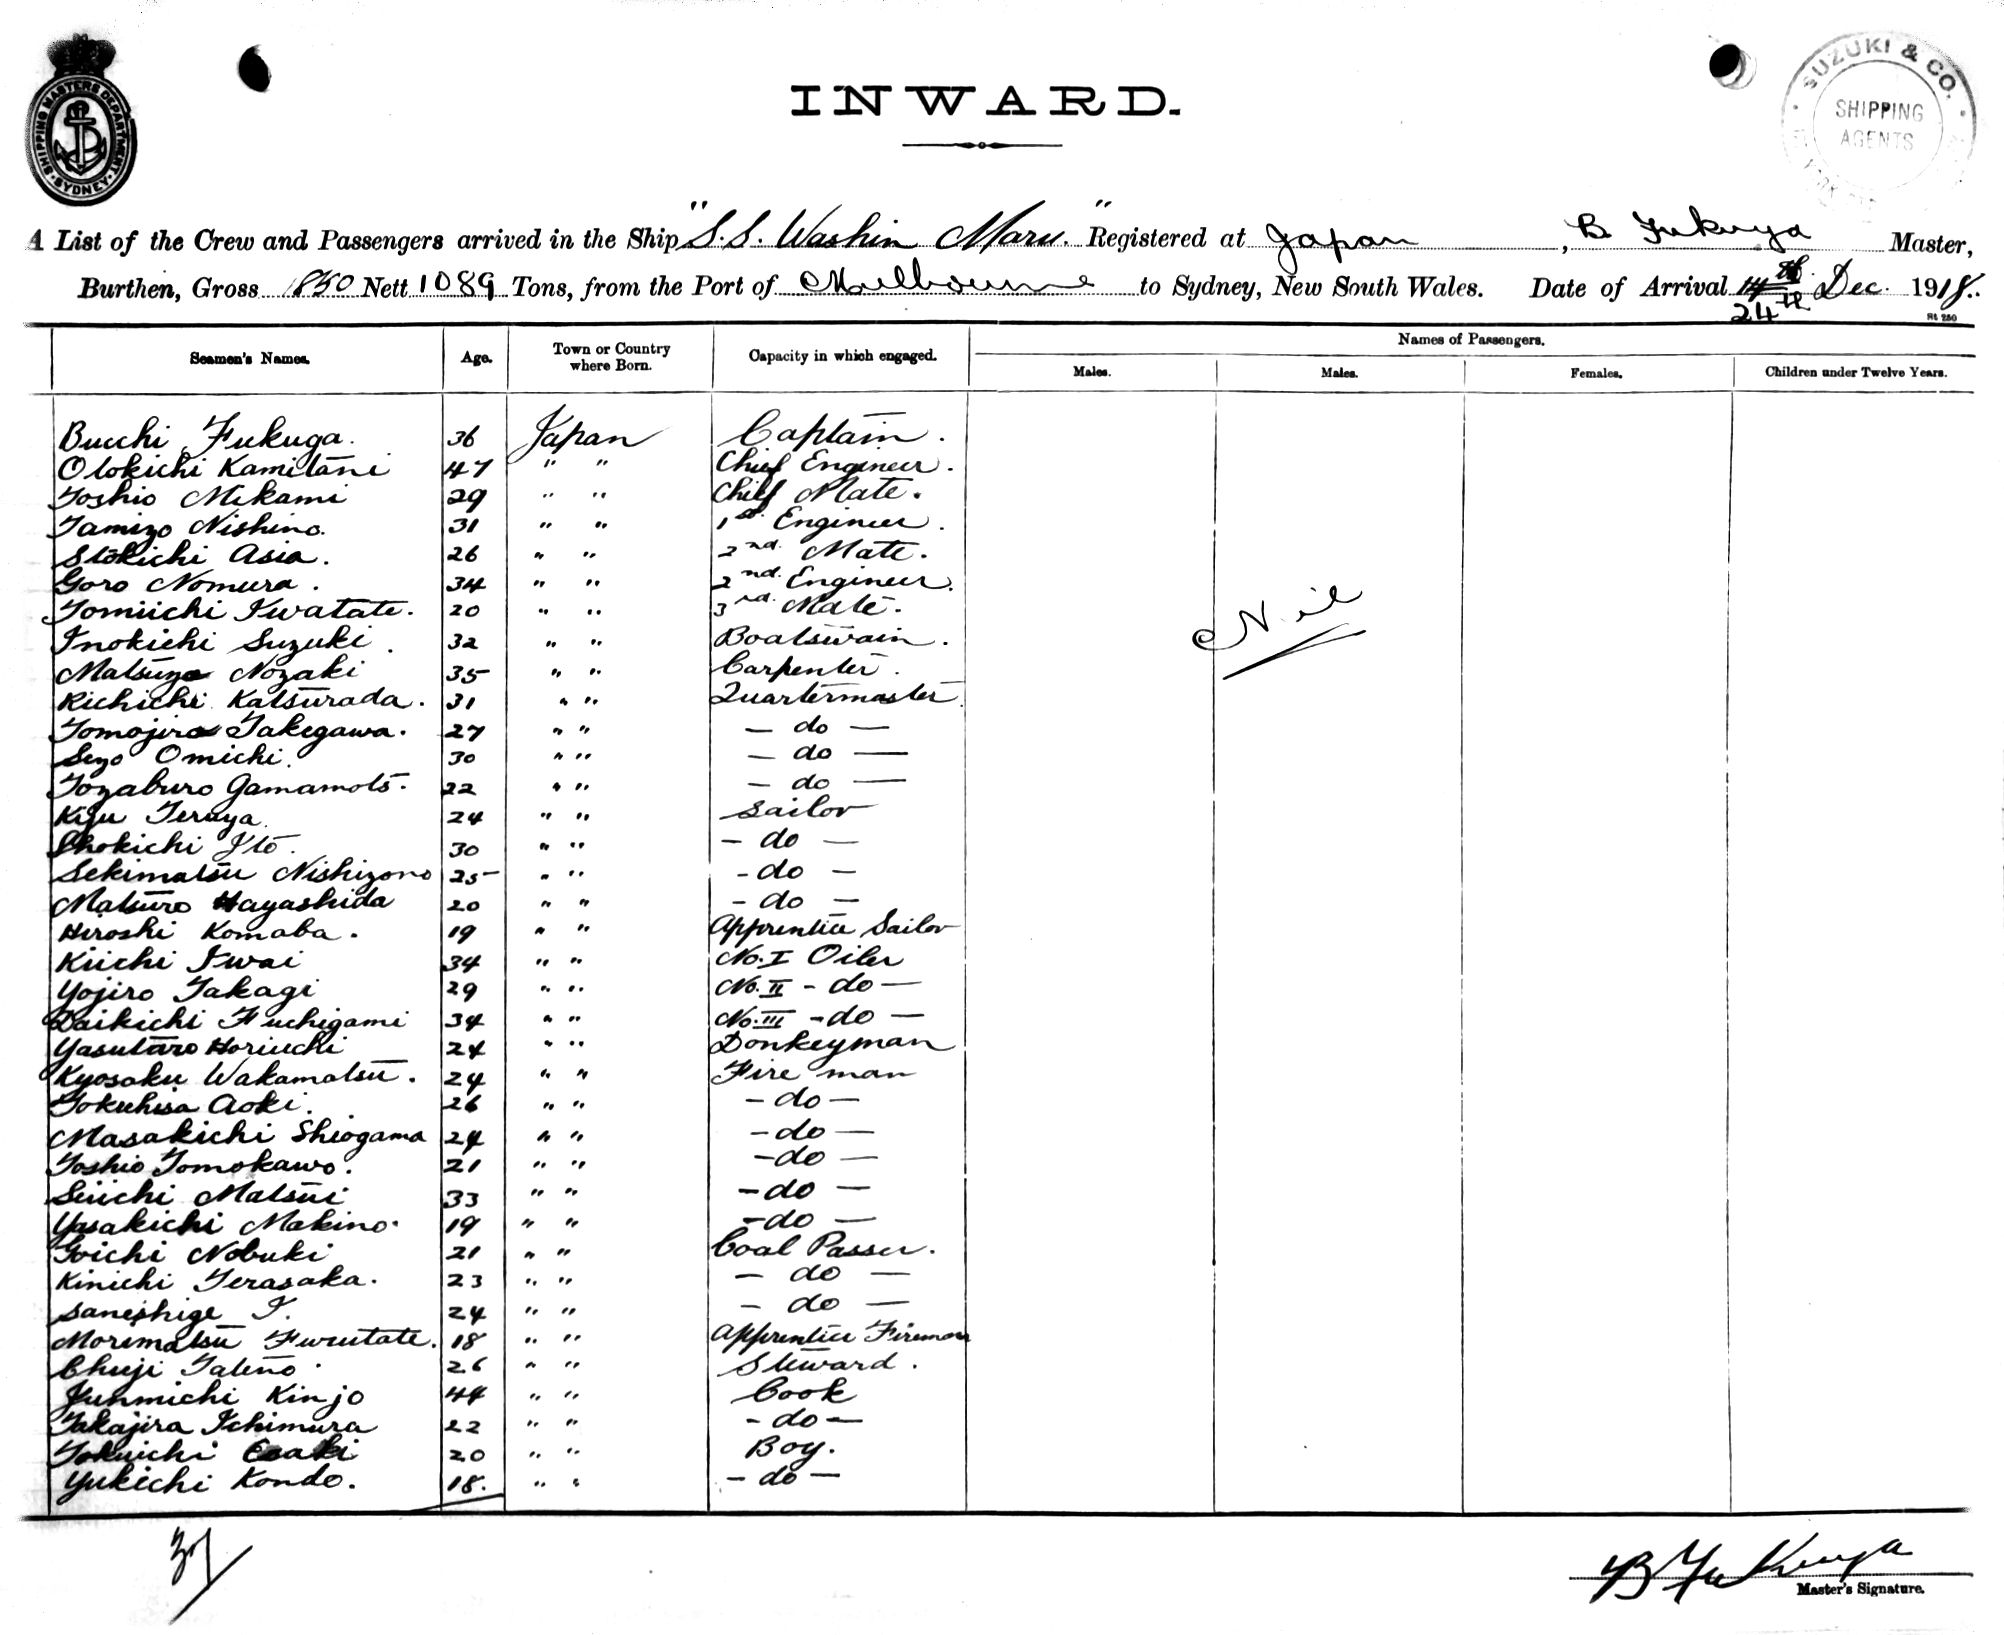 SHIPPING MASTERS DEPARTMENT. SYDNEY.
SUZUKI & CO.
SHIPPING
AGENTS
INWARD.
A List of the Crew and Passengers arrived in the Ship "S.S. Washin Maru." Registered at Japan, B Fukuya Master,
Burthen, Gross 1850 Nett 1089 Tons, from the Port of Melbourne to Sydney, New South Wales. Date of Arrival 14th Dec. 1918.
24th
St 250
Seamen's Names. Age. Town or Country where Born. Capacity in which engaged. Names of Passengers.
Males. Males. Females. Children under Twelve Years.
Bucchi Fukuga. 36 Japan Captain.
Otokichi Kamitani 47 " " Chief Engineer.
Yoshio Mikami 29 " " Chief Mate.
Tamizo Nishino. 31 " " 1st Engineer.
Stokichi Asia. 26 " " 2nd. Mate.
Goro Nomura. 34 " " 2nd. Engineer.
Tomiichi Iwatate. 20 " " 3rd. Mate.
Inokichi Suzuki. 32 " " Boatswain.
Matsuzo Nozaki 35 " " Carpenter.
Richichi Katsurada. 31 " " Quartermaster
Tomojiro Takegawa. 27 " " — do —
Sezo Omichi. 30 " " — do —
Tozaburo Gamamoto. 22 " " — do —
Kiju Teruya. 24 " " Sailor
Shokichi Ito. 30 " " — do —
Sekimatsu Nishizono 25 " " — do —
Matsuro Hayashida 20 " " — do —
Hiroshi Komaba. 19 " " Apprentice Sailor
Kiichi Iwai 34 " " No. I Oiler
Yojiro Takagi 29 " " No. II — do —
Daikichi Fuchigami 34 " " No. III — do —
Yasutaro Horiuchi 24 " " Donkeyman
Kyosaku Wakamatsu. 24 " " Fire man
Tokuhisa Aoki. 26 " " — do —
Masakichi Shiogama 24 " " — do —
Yoshio Tomokawo. 21 " " — do —
Seiichi Matsui 33 " " — do —
Yasakichi Makino. 19 " " — do —
Goichi Nobuki 21 " " Coal Passer.
Kinichi Terasaka. 23 " " — do —
Saneshige I. 24 " " — do —
Morimatsu Furutate. 18 " " Apprentice Fireman
Chuji Tateno. 26 " " Steward.
Junmichi Kinjo 44 " " Cook
Takajira Ichimura 22 " " — do —
Tokuichi 20 " " Boy.
Yukichi Kondo. 18. " " — do —
Nil
37
B Fukuya
Master's Signature.